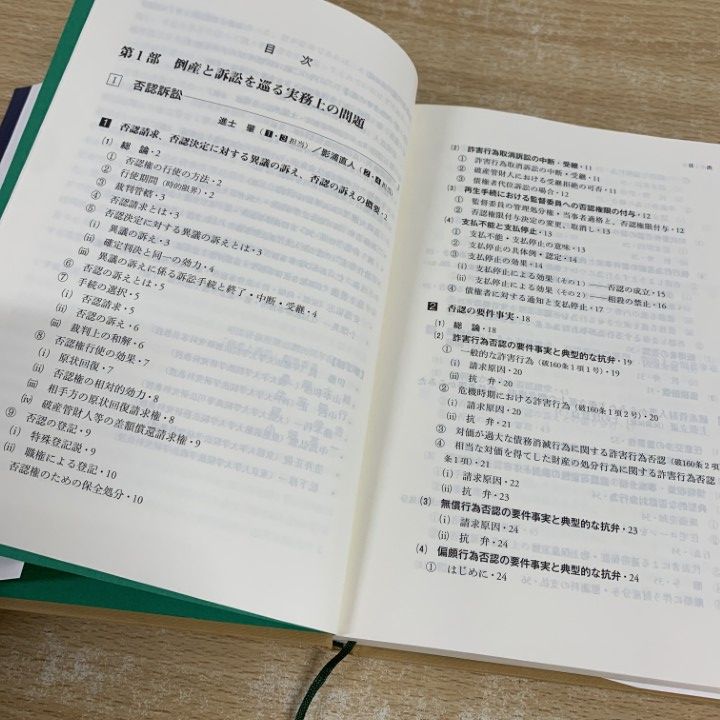 目 次
第Ⅰ部 倒産と訴訟を巡る実務上の問題
1 否認訴訟
進士 肇(1・3担当)/影浦直人(2・4担当)・2
1 否認請求、否認決定に対する異議の訴え、否認の訴えの概要・2
(1) 総 論・2
① 否認権の行使の方法・2
② 行使期間(時的限界)・2
③ 裁判管轄・3
④ 否認請求とは・3
⑤ 否認決定に対する異議の訴えとは・3
(i) 異議の訴え・3
(ii) 確定判決と同一の効力・4
(iii) 異議の訴えに係る訴訟手続と終了・中断・受継・4
⑥ 否認の訴えとは・5
⑦ 手続の選択・5
(i) 否認請求・5
(ii) 否認の訴え・6
(iii) 裁判上の和解・6
⑧ 否認権行使の効果・7
(i) 原状回復・7
(ii) 否認権の相対的効力・8
(iii) 相手方の原状回復請求権・8
(iv) 破産管財人等の差額償還請求権・9
⑨ 否認の登記・9
(i) 特殊登記説・9
(ii) 職権による登記・10
否認権のための保全処分・10
(2) 詐害行為取消訴訟の中断・受継・11
① 詐害行為取消訴訟の中断・受継・11
② 破産管財人における受継拒絶の可否・11
③ 債権者代位訴訟の場合・12
(3) 再生手続における監督委員への否認権限の付与・12
① 監督委員の管理処分権・当事者適格と、否認権限付与・12
② 否認権限付与決定の変更、取消し・13
(4) 支払不能と支払停止・13
① 支払不能・支払停止の意味・13
② 支払停止の具体例・認定・14
③ 支払停止の効果・14
(i) 支払停止による効果(その1)――否認の成立・15
(ii) 支払停止による効果(その2)――相殺の禁止・16
④ 債権者に対する通知と支払停止・17
2 否認の要件事実・18
(1) 総 論・18
(2) 詐害行為否認の要件事実と典型的な抗弁・19
① 一般的な詐害行為(破160条1項1号)・19
(i) 請求原因・20
(ii) 抗 弁・20
② 危機時期における詐害行為(破160条1項2号)・20
(i) 請求原因・20
(ii) 抗 弁・21
③ 対価が過大な債務消滅行為に関する詐害行為否認(破160条2項
④ 相当な対価を得てした財産の処分行為に関する詐害行為否認
条1項)・21
(i) 請求原因・22
(ii) 抗 弁・22
(3) 無償行為否認の要件事実と典型的な抗弁・23
(i) 請求原因・24
(ii) 抗 弁・24
(4) 偏頗行為否認の要件事実と典型的な抗弁・24
① はじめに・24